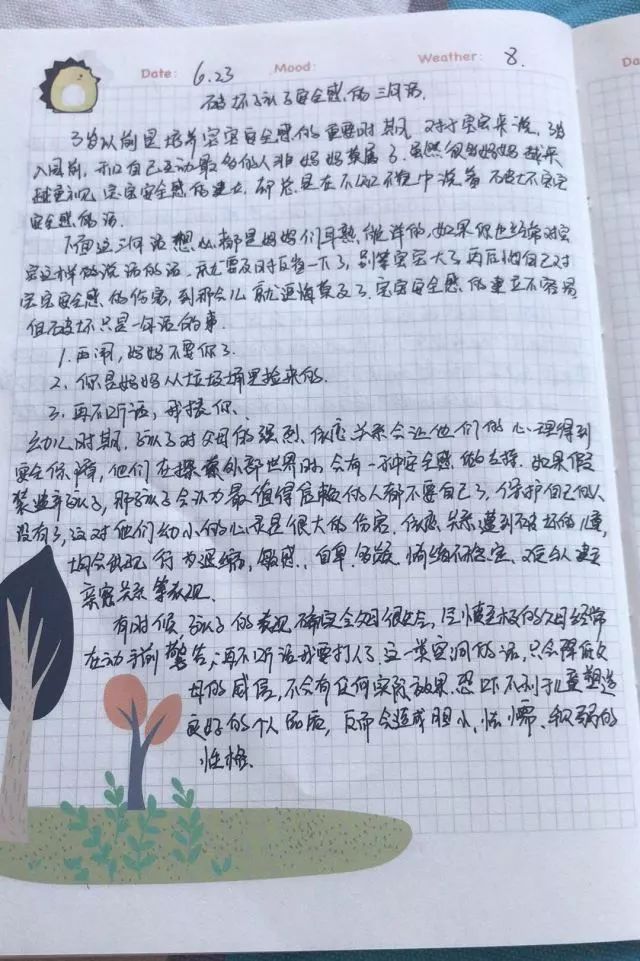 Date: 6.23 Mood: Weather: 8.
Da
破坏孩子安全感的三句话.
3岁以前是培养宝宝安全感的重要时期. 对于宝宝来说, 3岁
入园前, 和自己互动最多的人非妈妈莫属了. 虽然很多妈妈越来
越重视宝宝安全感的建立, 却总是在不知不觉中说着破坏宝宝
安全感的话.
下面这三句话想必都是妈妈们耳熟能详的, 如果你也经常对宝
宝这样说话的话, 就要及时反省一下了, 别等宝宝大了再后悔自己对
宝宝安全感的伤害, 到那会儿就追悔莫及了. 宝宝安全感的建立不容易
但破坏只是一句话的事.
1. 再闹, 妈妈不要你了.
2. 你是妈妈从垃圾桶里捡来的.
3. 再不听话, 我揍你.
幼儿时期, 孩子对父母的强烈依恋关系会让他们的心理得到
安全保障, 他们在探索外部世界时, 会有一种安全感做支撑. 如果假
装遗弃孩子, 那孩子会认为最值得信赖的人都不要自己了, 保护自己的人
没有了, 这对他们幼小的心灵是很大的伤害. 依恋关系遭到破坏的儿童,
均会出现行为退缩, 敏感, 自卑, 多疑, 情绪不稳定, 难以建立
亲密关系等表现.
有时候, 孩子的表现确实令父母很生气, 
在动手前警告, 再不听话我要打人了. 这一类空洞的话, 只会降低父
母的威信, 不会有任何实际效果. 恐吓不利于儿童塑造
良好的个人品质, 反而会造成胆小, 怯懦, 软弱的
性格.